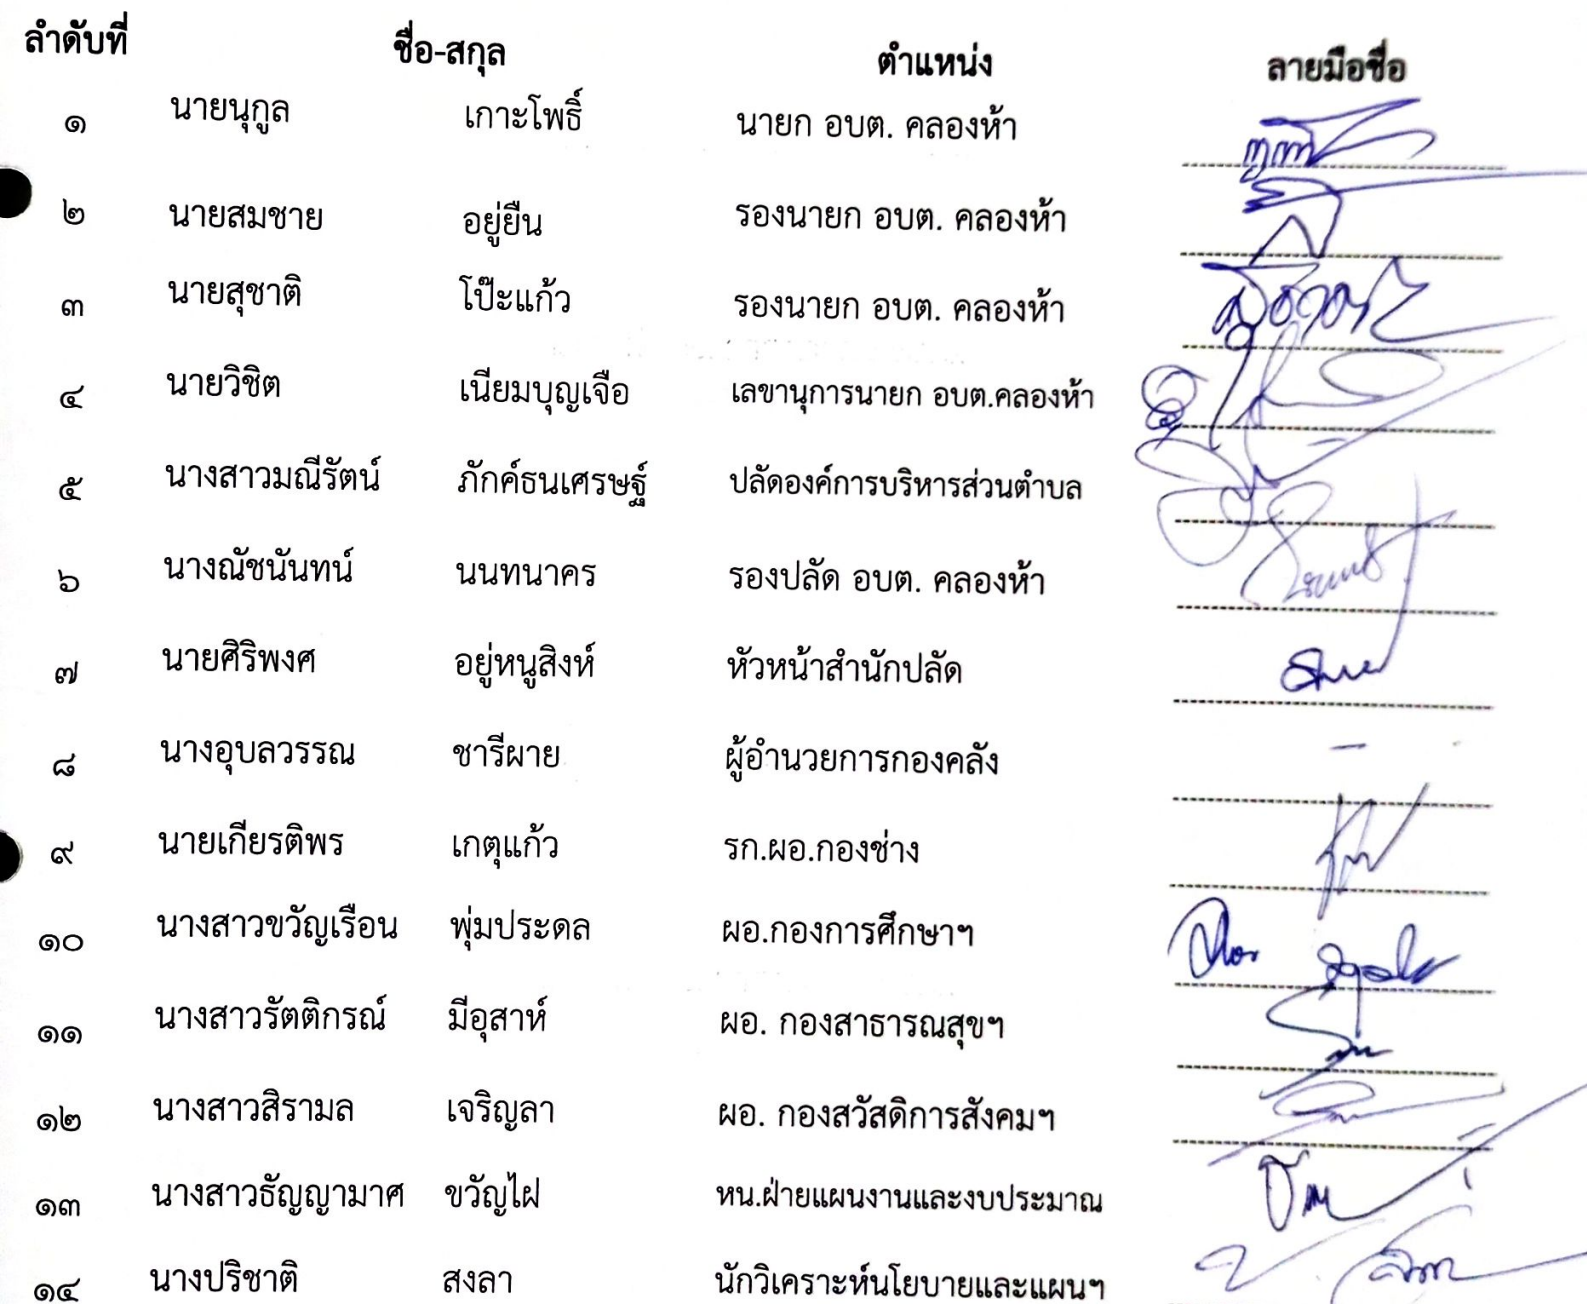 ลำดับที่ ชื่อ-สกุล ตำแหน่ง ลายมือชื่อ
๑ นายนุกูล เกาะโพธิ์ นายก อบต. คลองห้า
๒ นายสมชาย อยู่ยืน รองนายก อบต. คลองห้า
๓ นายสุชาติ โป๊ะแก้ว รองนายก อบต. คลองห้า
๔ นายวิชิต เนียมบุญเจือ เลขานุการนายก อบต.คลองห้า
๕ นางสาวมณีรัตน์ ภักค์ธนเศรษฐ์ ปลัดองค์การบริหารส่วนตำบล
๖ นางณัชนันทน์ นนทนาคร รองปลัด อบต. คลองห้า
๗ นายศิริพงศ อยู่หนูสิงห์ หัวหน้าสำนักปลัด
๘ นางอุบลวรรณ ชารีผาย ผู้อำนวยการกองคลัง -
๙ นายเกียรติพร เกตุแก้ว รก.ผอ.กองช่าง
๑๐ นางสาวขวัญเรือน พุ่มประดล ผอ.กองการศึกษาฯ
๑๑ นางสาวรัตติกรณ์ มีอุสาห์ ผอ. กองสาธารณสุขฯ
๑๒ นางสาวสิรามล เจริญลา ผอ. กองสวัสดิการสังคมฯ
๑๓ นางสาวธัญญามาศ ขวัญไฝ หน.ฝ่ายแผนงานและงบประมาณ
๑๔ นางปริชาติ สงลา นักวิเคราะห์นโยบายและแผนฯ